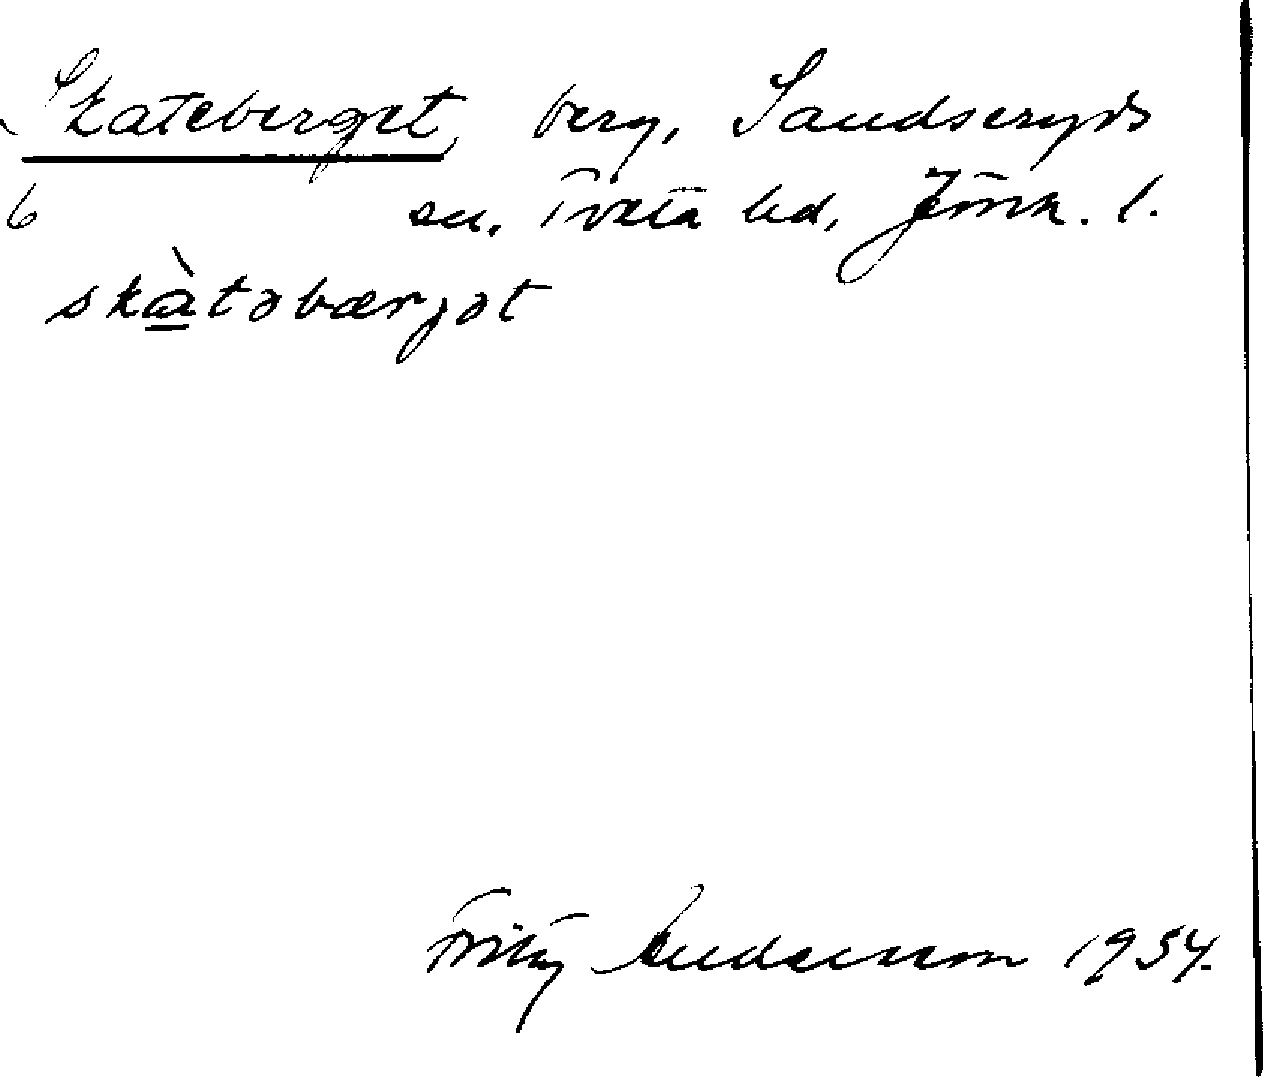 Skateberget, berg, Sandseryds
6 sn, Tveta hd, Jönk. l.
skàtəbærjət
Fritz Andersson 1954.